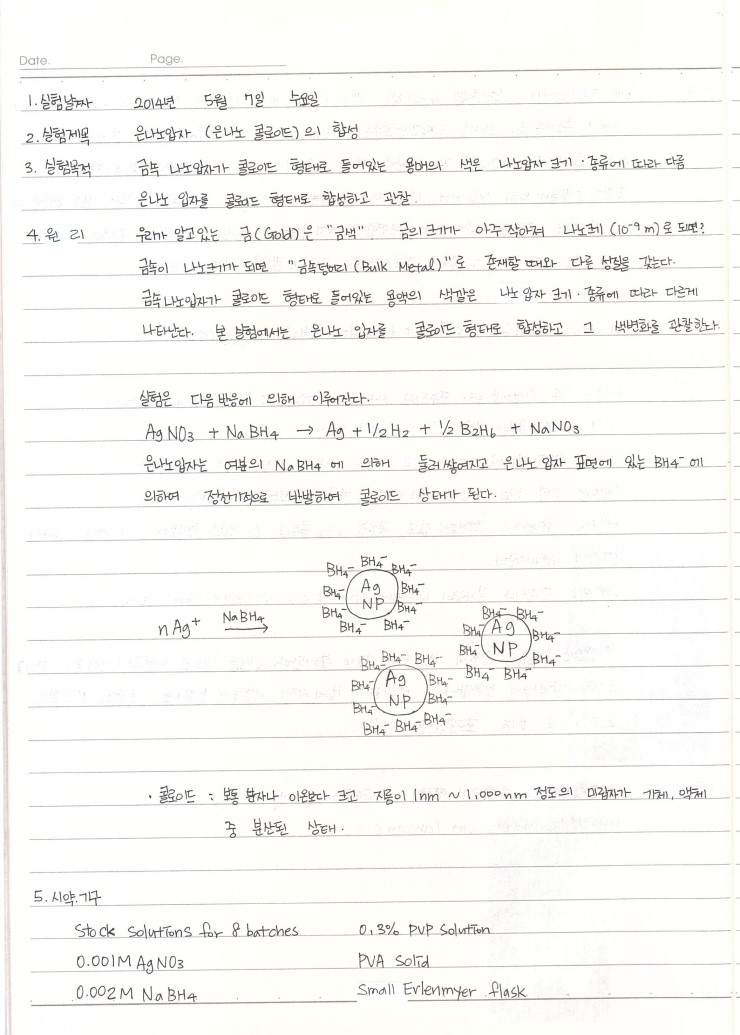 Date. Page.
1. 실험날짜 2014년 5월 7일 수요일
2. 실험제목 은나노입자 (은나노 콜로이드)의 합성
3. 실험목적 금속 나노입자가 콜로이드 형태로 들어있는 용매의 색은 나노입자 크기·종류에 따라 다름
은나노 입자를 콜로이드 형태로 합성하고 관찰.
4. 원 리 우리가 알고있는 금(Gold)은 "금색". 금의 크기가 아주 작아져 나노크기 (10⁻⁹ m)로 되면?
금속이 나노크기가 되면 "금속덩어리(Bulk Metal)"로 존재할 때와 다른 성질을 갖는다.
금속나노입자가 콜로이드 형태로 들어있는 용액의 색깔은 나노 입자 크기·종류에 따라 다르게
나타난다. 본 실험에서는 은나노 입자를 콜로이드 형태로 합성하고 그 색변화를 관찰한다.
실험은 다음 반응에 의해 이루어진다.
AgNO₃ + NaBH₄ → Ag + 1/2 H₂ + 1/2 B₂H₆ + NaNO₃
은나노입자는 여분의 NaBH₄에 의해 둘러 쌓여지고 은나노 입자 표면에 있는 BH₄⁻에
의하여 정전기적으로 반발하여 콜로이드 상태가 된다.
BH₄⁻ BH₄⁻ BH₄⁻
BH₄⁻ Ag BH₄⁻
BH₄⁻ NP BH₄⁻
BH₄⁻ BH₄⁻
nAg⁺ NaBH₄ →
BH₄⁻ BH₄⁻
BH₄⁻ Ag BH₄⁻
BH₄⁻ NP BH₄⁻
BH₄⁻ BH₄⁻
BH₄⁻ BH₄⁻ BH₄⁻
BH₄⁻ Ag BH₄⁻
BH₄⁻ NP BH₄⁻
BH₄⁻ BH₄⁻ BH₄⁻
· 콜로이드 : 보통 분자나 이온보다 크고 지름이 1nm ~ 1,000nm 정도의 미립자가 기체, 액체
중 분산된 상태.
5. 시약.기구
Stock solutions for 8 batches 0.3% PVP solution
0.001M AgNO₃ PVA solid
0.002M NaBH₄ Small Erlenmyer flask